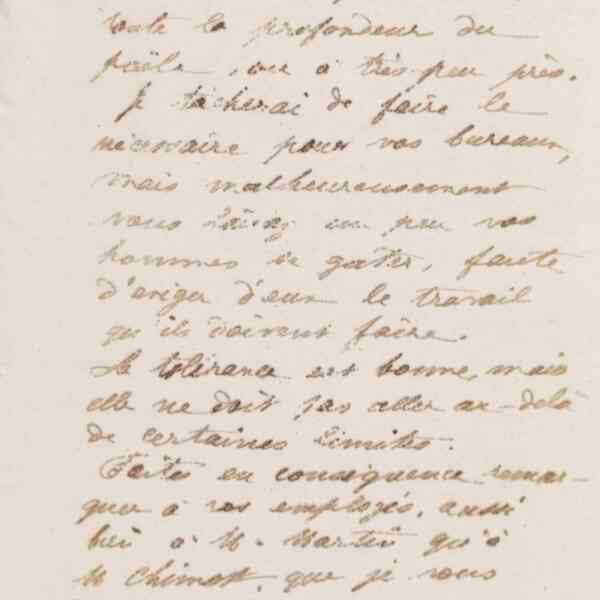 toute la profondeur du
poële, ou à très peu près.
Je tâcherai de faire le
nécessaire pour vos bureaux,
mais malheureusement
vous un peu vos
hommes se gâter, faute
d'exiger d'eux le travail
qu'ils doivent faire.
La tolérance est bonne, mais
elle ne doit pas aller au-delà
de certaines limites.
Faites en conséquence remar-
quer à vos employés, aussi
bien à M. Martin qu'à
M Chimot, que je vous